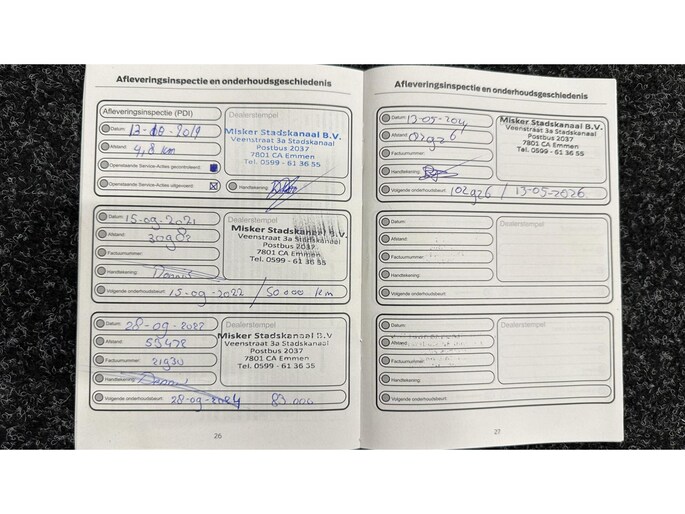 Afleveringsinspectie en onderhoudsgeschiedenis
Afleveringsinspectie (PDI)
Datum: 13-08-2019
Afstand: 4,8 km
Openstaande Service-Acties gecontroleerd:
Openstaande Service-Acties uitgevoerd:
Dealerstempel
Misker Stadskanaal B.V.
Veenstraat 3a Stadskanaal
Postbus 2037
7801 CA Emmen
Tel. 0599 - 61 36 55
Handtekening:
Datum: 15-09-2021
Afstand:
Factuurnummer:
Handtekening: Dennis
Volgende onderhoudsbeurt: 15-09-2022 / 50 000 km
Dealerstempel
Misker Stadskanaal B.V.
Veenstraat 3a Stadskanaal
Postbus 2037
7801 CA Emmen
Tel. 0599 - 61 36 55
Datum: 28-09-2022
Afstand: 55478
Factuurnummer: 21930
Handtekening: Dennis
Volgende onderhoudsbeurt: 28-09-2024 83.000
Dealerstempel
Misker Stadskanaal B.V
Veenstraat 3a Stadskanaal
Postbus 2037
7801 CA Emmen
Tel. 0599 - 61 36 55
26
Afleveringsinspectie en onderhoudsgeschiedenis
Datum: 13-05-
Afstand:
Factuurnummer:
Handtekening:
Volgende onderhoudsbeurt: 102926 / 13-05-2026
Dealerstempel
Misker Stadskanaal B.V.
Veenstraat 3a Stadskanaal
Postbus 2037
7801 CA Emmen
Tel. 0599 - 61 36 55
Datum:
Afstand:
Factuurnummer:
Handtekening:
Volgende onderhoudsbeurt:
Dealerstempel
Datum:
Afstand:
Factuurnummer:
Handtekening:
Volgende onderhoudsbeurt:
Dealerstempel
27